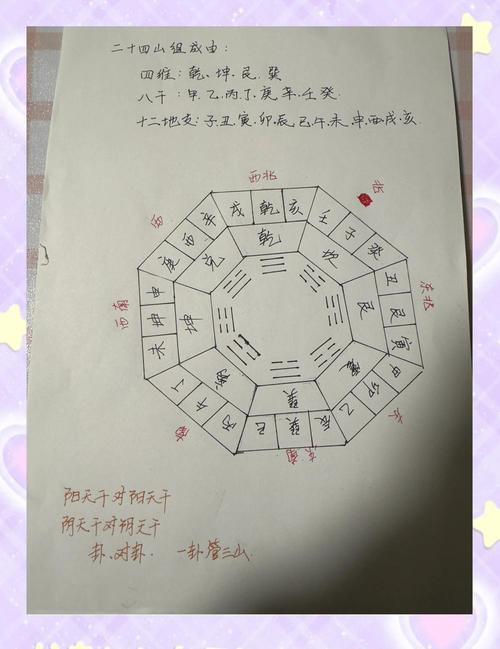 二十四山组成由：
四维：乾、坤、艮、巽
八干：甲、乙、丙、丁、庚、辛、壬癸.
十二地支：子.丑.寅.卯.辰.巳.午.未.申.酉.戌.亥.
西北
北
戌 乾 亥
壬 子 癸
丑 艮 寅
甲 卯 乙
辰 巽 巳
丙 午 丁
未 坤 申
庚 酉 辛
乾
坎
艮
震
巽
离
坤
兑
东北
东
东南
南
西南
西
阳天干对阳天干
阴天干对阴天干
卦、对卦. 一卦管三山.